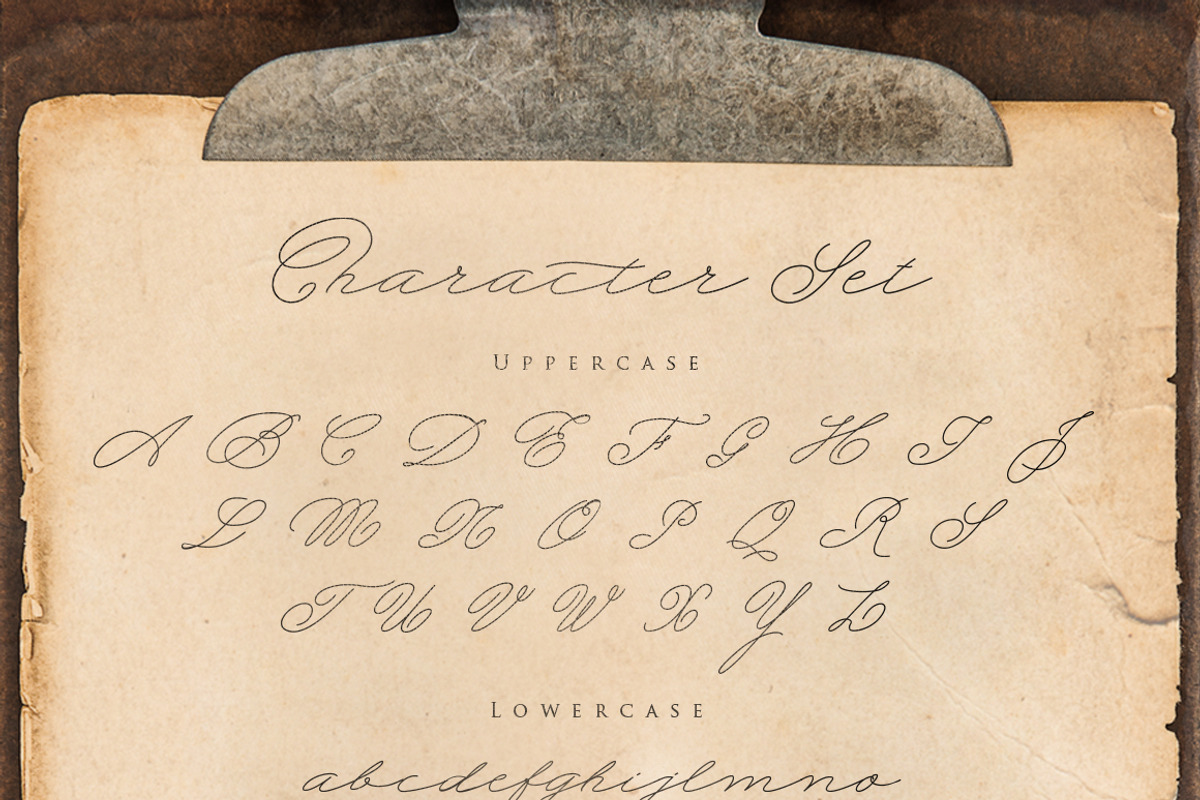 Character Set
UPPERCASE
A B C D E F G H I J
L M N O P Q R S
T U V W X Y Z
LOWERCASE
abcdefghijlmno